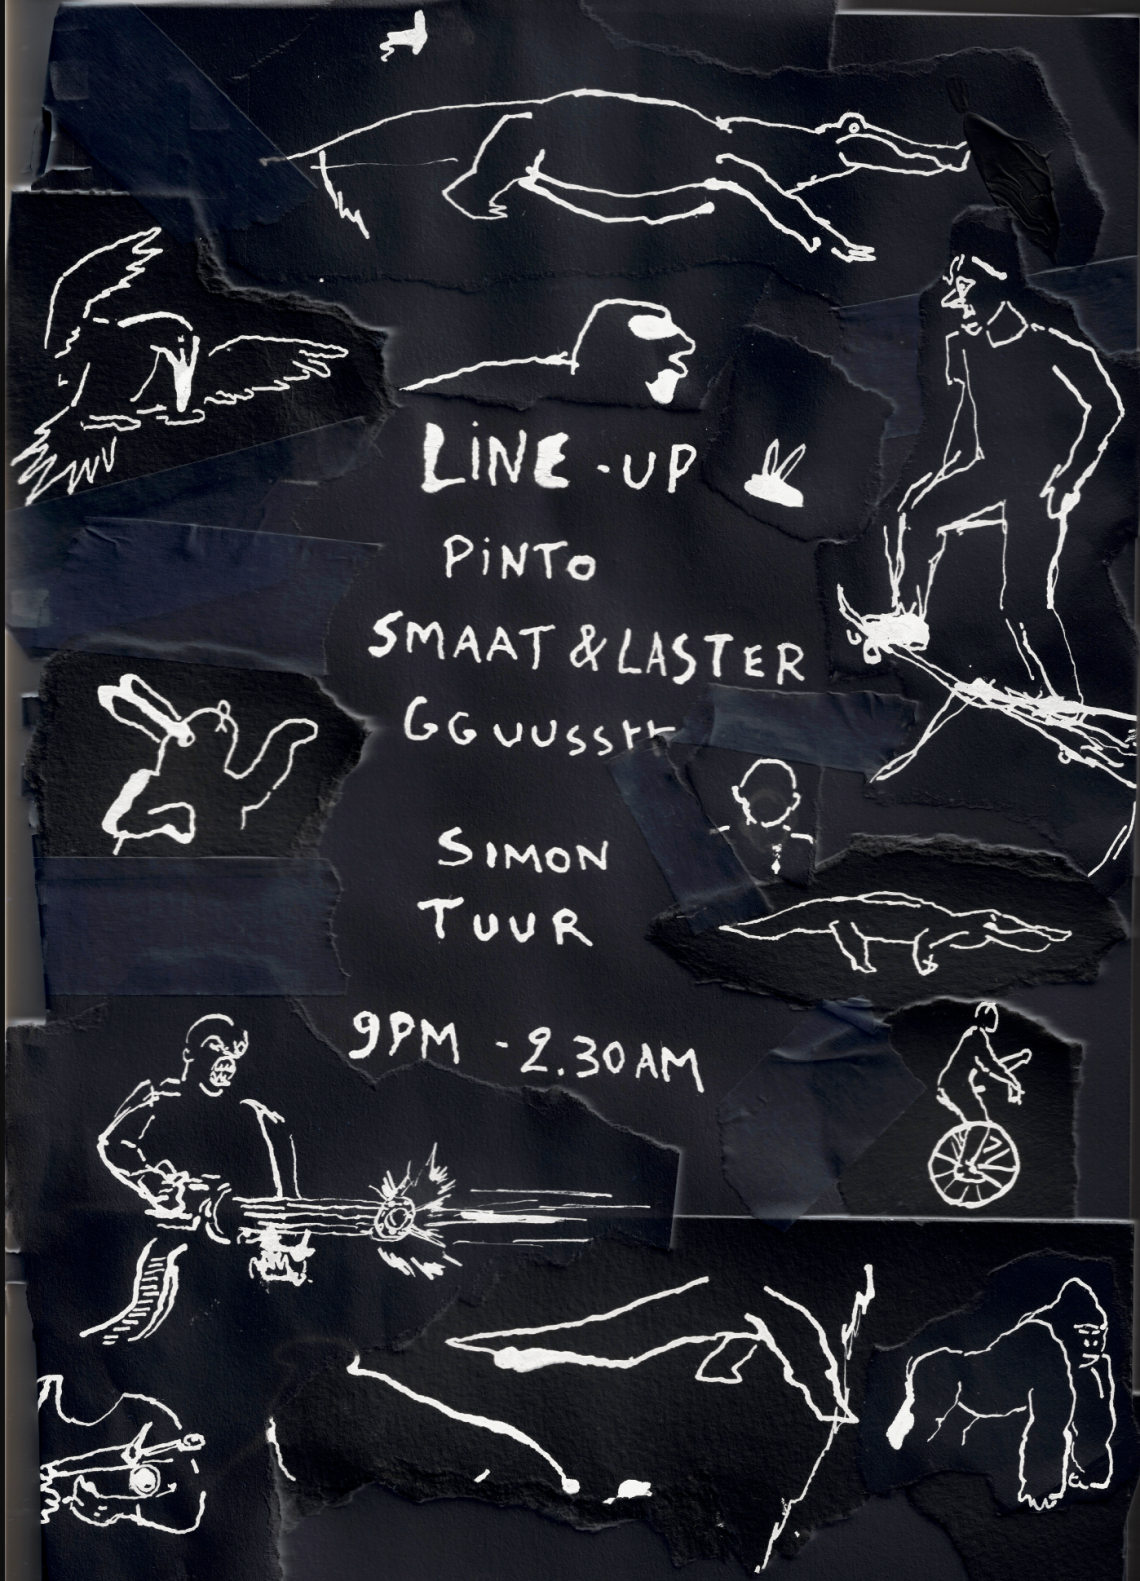 LiNE-UP
PiNTO
SMAAT & LASTER
GGUUSSTT
SIMON
TUUR
9PM - 2.30AM